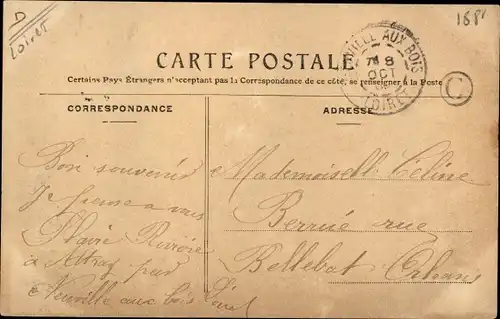 D
Loiret
188
CARTE POSTALE
Certains Pays Étrangers n'acceptant pas la Correspondance de ce côté, se renseigner à la Poste
VILLE AUX BOIS
8
OCT
LOIRET
C
CORRESPONDANCE
ADRESSE
Bon souvenir
Je pense a vous
Rivière
a pas
Neuville aux bois Loiret
Mademoiselle Céline
Berrué rue
Bellebat Orléans